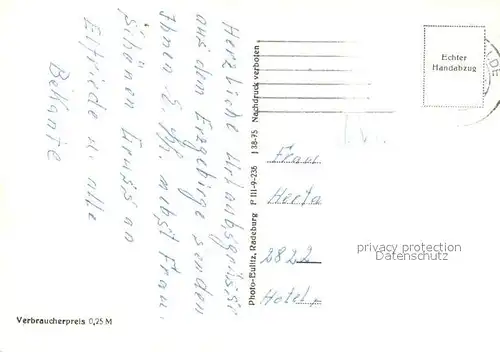 Herzliche Urlaubsgrüsse
aus dem Erzgebirge senden
Ihnen nebst Frau.
Schönen Gruss an
Elfriede u. alle
Bekannte
Photo-Bulitz, Radeburg P III-9-236 I 38-75 Nachdruck verboten
Echter
Handabzug
Frau
Herta
2822
Hotel
privacy protection
Datenschutz
Verbraucherpreis 0,25 M